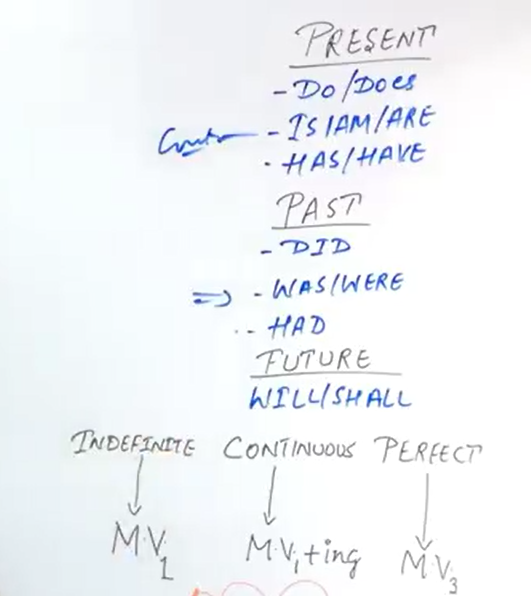 PRESENT
- DO/DOES
Cont - IS/AM/ARE
- HAS/HAVE
PAST
- DID
⇒ - WAS/WERE
- HAD
FUTURE
WILL/SHALL
INDEFINITE CONTINUOUS PERFECT
M.V1 M.V1+ing M.V3